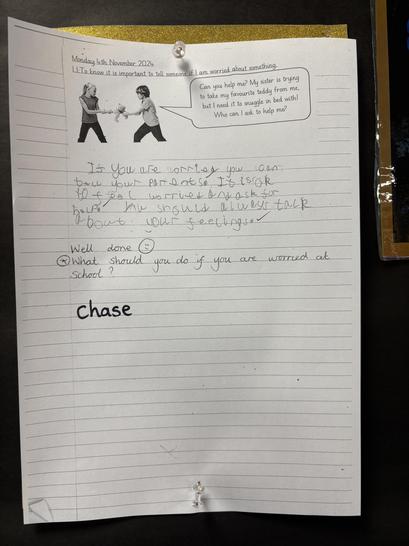 Monday 4th November 2024
L.I. To know it is important to tell someone if I am worried about something.
Can you help me? My sister is trying
to take my favourite teddy from me,
but I need it to snuggle in bed with!
Who can I ask to help me?
If you are worried you can
your parents. It is ok
to feel worried and ask for
You should always talk
about your feelings.
Well done
What should you do if you are worried at
school?
Chase